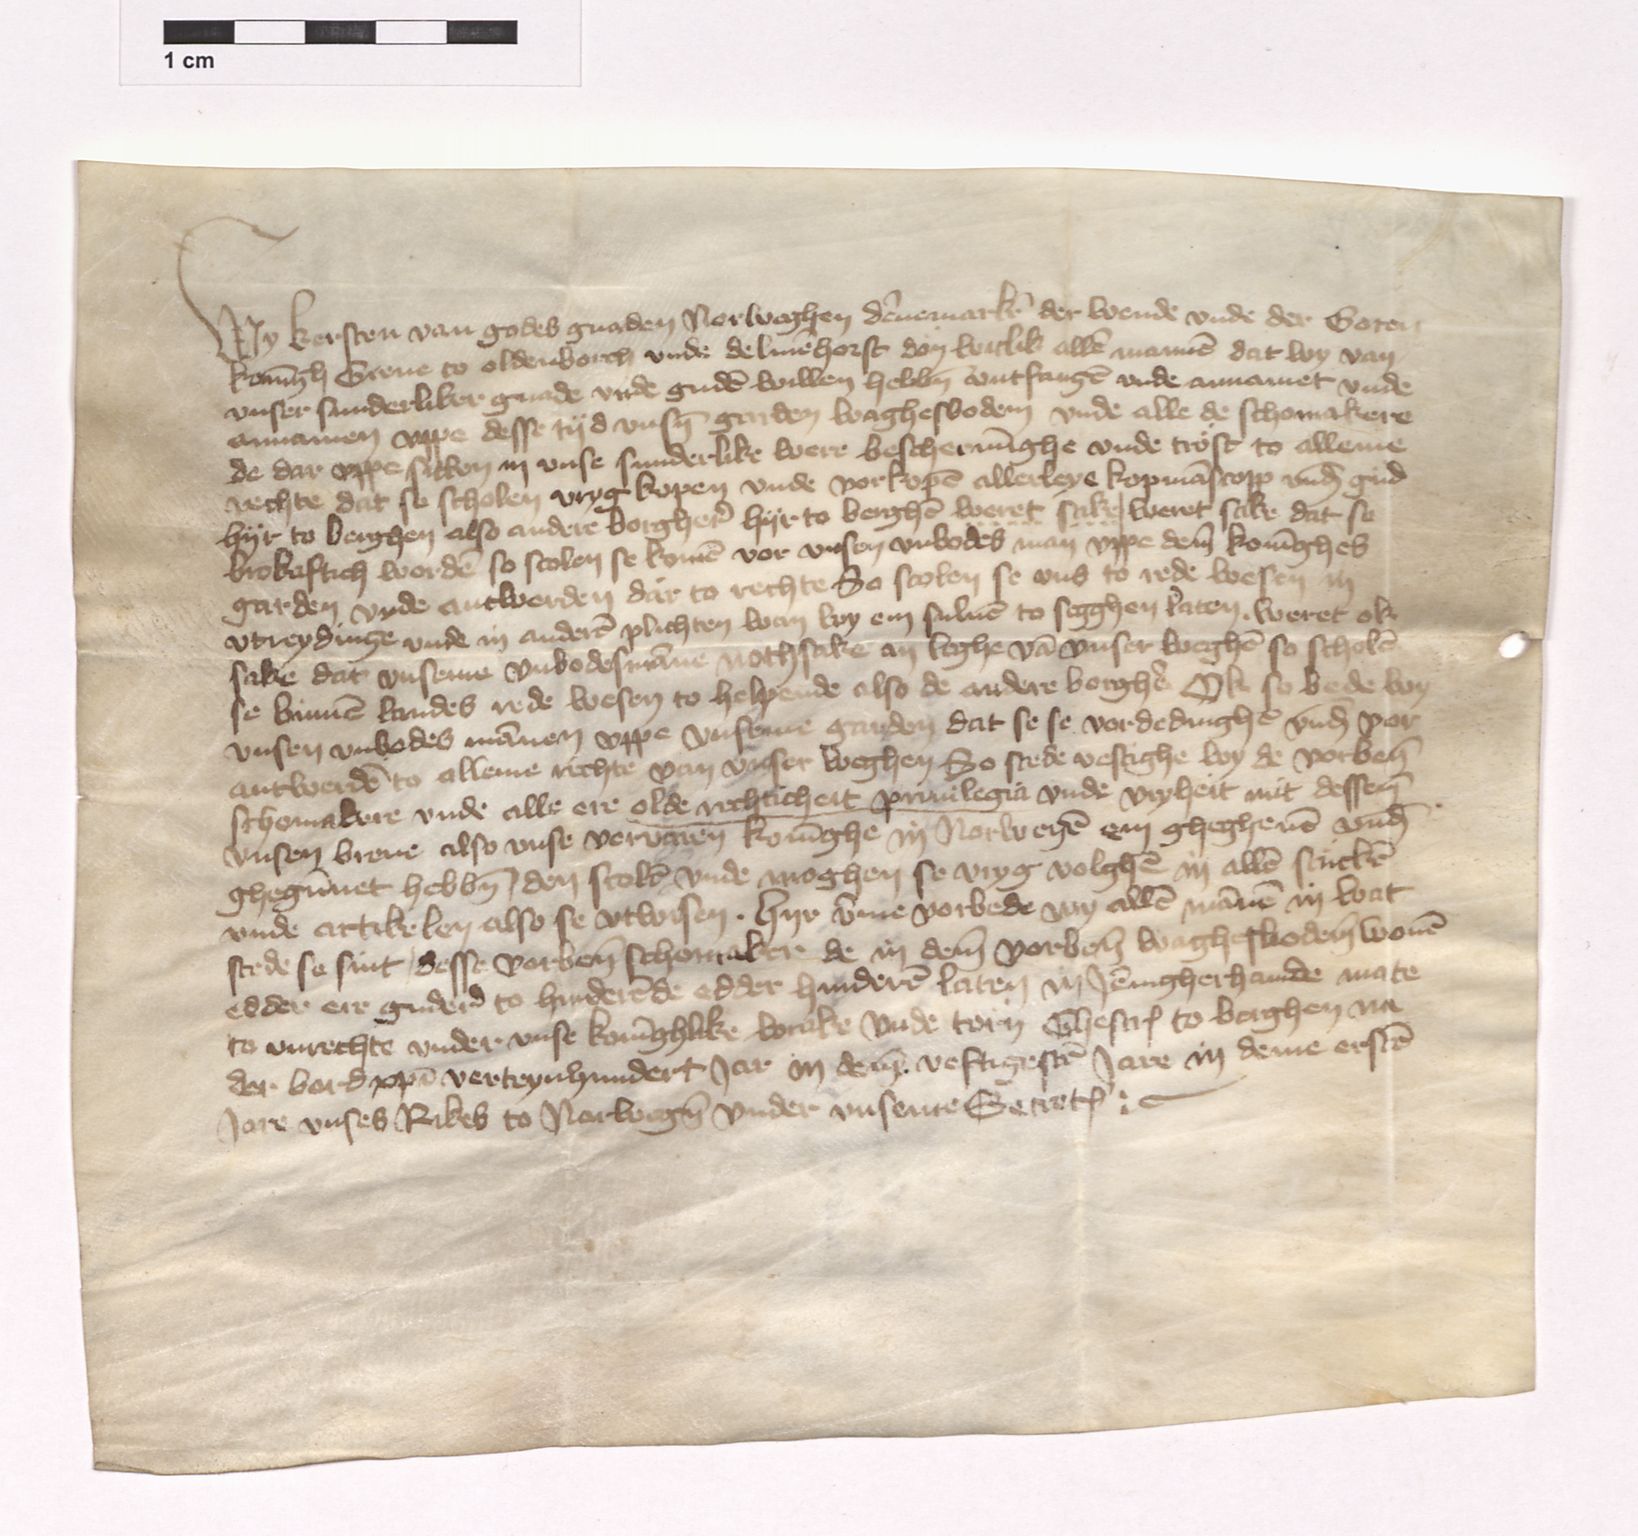 1 cm
Wy kersten van godes gnaden Norweghen dēnemarkē der wende vnde der Goten
konīgh Greue to oldenborch vnde delmēhorst don witlik allē mannē dat wy van
vnser sunderliker gnade vnde gudē willen hebbn̄ vntfangē vnde annamet vnde
annamen vppe desse tijd vnsn̄ garden waghesboden vnde alle de schomakere
de dar vppe sitten in vnse sunderlike were beschermīghe vnde trost to alleme
rechte dat se scholen vryg kopen vnde vorkopē allerleye kopmāscopp vnd̄ gud
hijr to berghen also andere borgher̄ hijr to berghē weret sake weret sake dat se
brokaftich wordē so scolen se komē vor vnsen vnbodes man vppe dem̄ konīghes
garden vnde antwerden dar to rechte So scolen se vns to rede wesen in
vtreydinge vnde in anderē plichten wan wy em suluē to segghen laten. weret ok
sake dat vnseme vnbodesmāne nothsake an leghe vā vnser weghē so scholē
se binnē landes rede wesen to helpende also de andere borgher̄ Ok so bede wy
vnsen vnbodes mānen vppe vnseme garden dat se se vordedinghē vnd̄ vor
antwerdē to alleme rechte van vnser weghen So stede vestighe wy de vorben̄
schomakere vnde alle ere olde rechticheit priuilegia vnde vryheit mit dessem̄
vnsen breue also vnse vervaren konīghe in Norwegē em ghegheuē vnd̄
ghegūnet hebbn̄ den scolē vnde moghen se vryg volghē in allē stuckē
vnde artikelen also se vtwisen. Hijr vm̄e vorbede wy allē mānē in wat
stede se sint desse vorben̄ schomaker de in dem̄ vorben̄ waghesboden wonē
edder ere guder̄ to hinderēde edder hinderē laten in jēnigherhande mate
to vnrechte vnder vnse konīghlike wrake vnde torn Ghescr̄ to berghen na
der bord xpī verteynhundert Jar in dem̄ veftigestē Jare in deme erstē
Jare vnses Rikes to Norwegn̄ vnder vnseme Secret̄